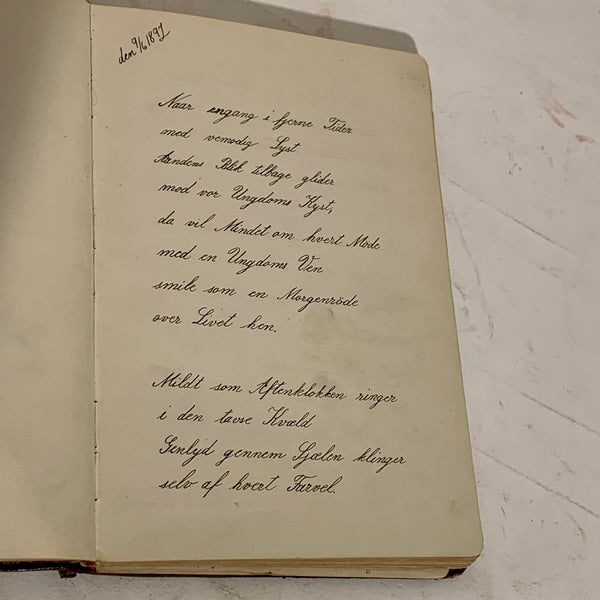 den 9/6 1897
Naar engang i fjerne Tider
med vemodig Lyst
Aandens Blik tilbage glider
mod vor Ungdoms Kyst,
da vil Mindet om hvert Møde
med en Ungdoms Ven
smile som en Morgenröde
over Livet hen.
Mildt som Aftenklokken ringer
i den tavse Kvæld
Genlyd gennem Sjælen klinger
selv af hvert Farvel.